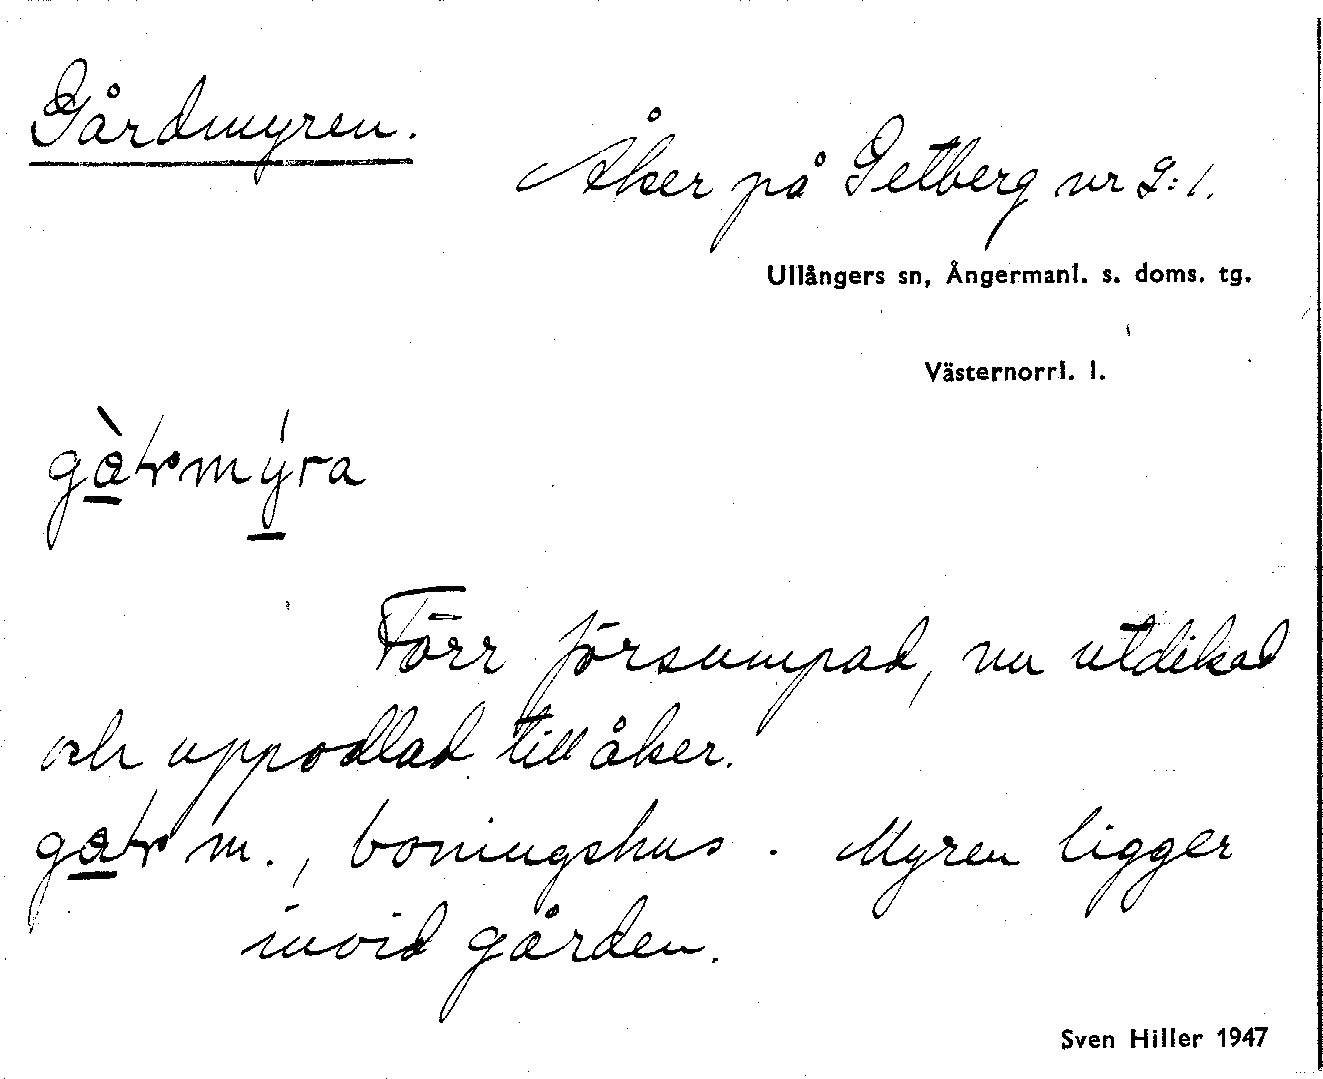 Gårdmyren.
Åker på Getberg nr 2:1.
Ullångers sn, Ångermanl. s. doms. tg.
Västernorrl. l.
Förr försumpad, nu utdikad
och uppodlad till åker.
m., boningshus. Myren ligger
invid gården.
Sven Hiller 1947